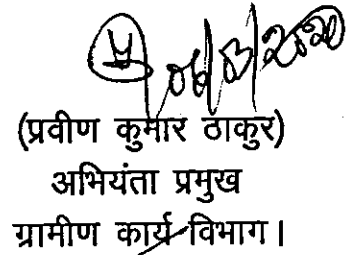 (प्रवीण कुमार ठाकुर)
अभियंता प्रमुख
ग्रामीण कार्य विभाग।